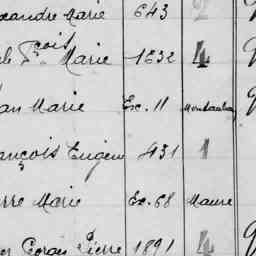 xandre Marie 643 2
çois Marie 1632 4
an Marie Exc. 11 Montauban
ançois Eugèn 431 1
rre Marie Ex. 68 Maure
Pierre 1891 4